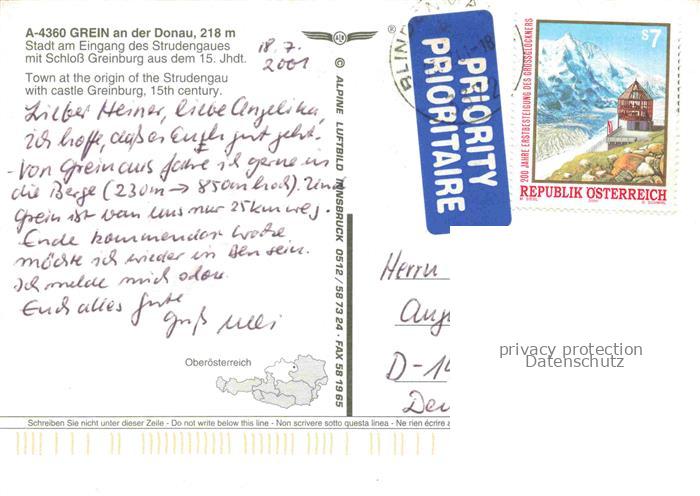 A-4360 GREIN an der Donau, 218 m
Stadt am Eingang des Strudengaues
mit Schloß Greinburg aus dem 15. Jhdt.
Town at the origin of the Strudengau
with castle Greinburg, 15th century.
18.7.
2001
Lieber Heiner, liebe Angelika,
ich hoffe, daß es Euch gut geht.
- Von Grein aus fahre ich gerne in
die Berge (230m → 850m hoch). Und
Grein ist von uns nur 25km weg.
Ende kommender Woche
möchte ich wieder in sein.
Ich melde mich dann.
Euch alles Gute
Gruß
Oberösterreich
© ALPINE LUFTBILD INNSBRUCK 0512 / 58 73 24 · FAX 58 19 65
PRIORITY
PRIORITAIRE
S7
200 JAHRE ERSTBESTEIGUNG DES GROSSGLOCKNERS
REPUBLIK ÖSTERREICH
Herrn
Ang
D-14
privacy protection
Datenschutz
Schreiben Sie nicht unter dieser Zeile - Do not write below this line - Non scrivere sotto questa linea - Ne rien écrire a